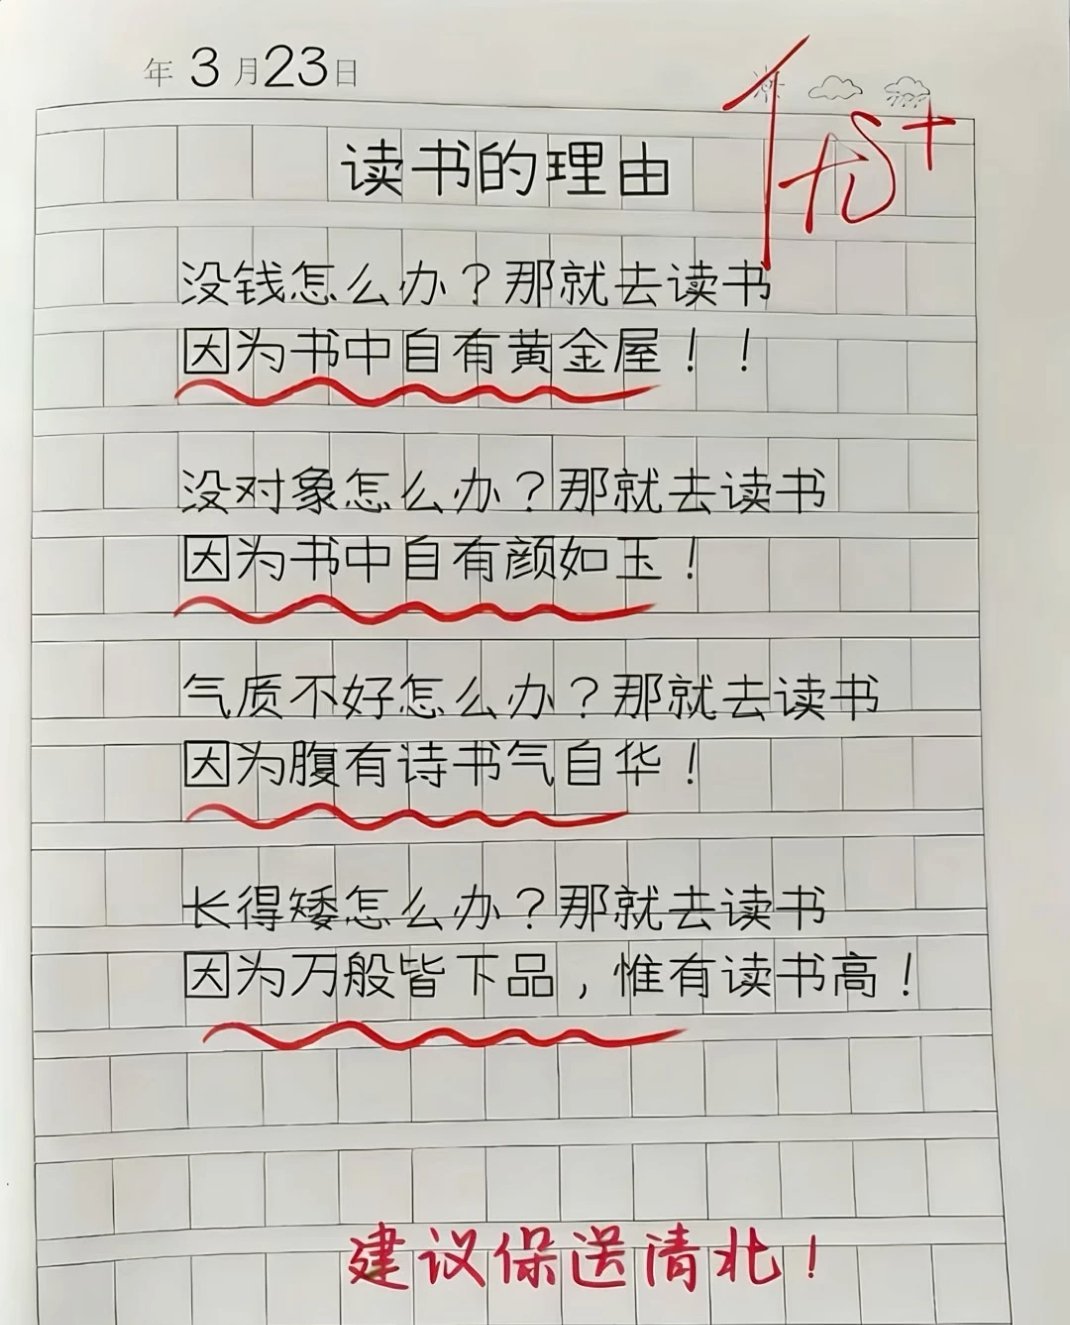 年3月23日
优+
读书的理由
没钱怎么办？那就去读书
因为书中自有黄金屋！！
没对象怎么办？那就去读书
因为书中自有颜如玉！
气质不好怎么办？那就去读书
因为腹有诗书气自华！
长得矮怎么办？那就去读书
因为万般皆下品，惟有读书高！
建议保送清北！